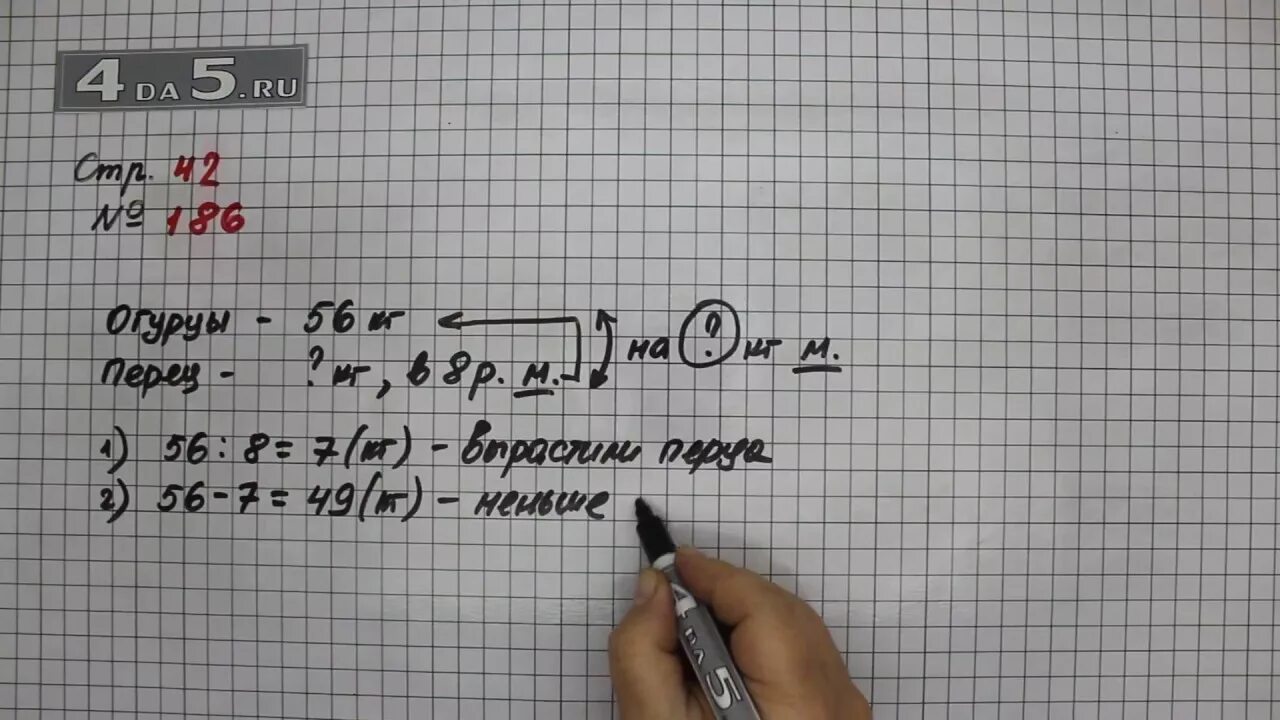 4DA5.RU
Стр. 42
№ 186
Огурцы - 56 кг
на ? кг м.
Перец - ? кг, в 8 р. м.
1) 56 : 8 = 7 (кг) - вырастили перца
2) 56 - 7 = 49 (кг) - меньше
4DA5